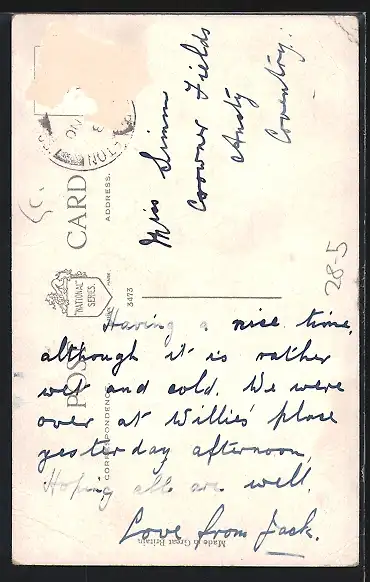 POST CARD
CORRESPONDENCE
ADDRESS.
"NATIONAL"
SERIES.
3473
Made in Great Britain
Miss Simm
Coowner Fields
Ansty
Coventry.
28-5
Having a nice time,
although it is rather
wet and cold. We were
over at Willies' place
yesterday afternoon,
Hoping all are well.
Love from Jack.